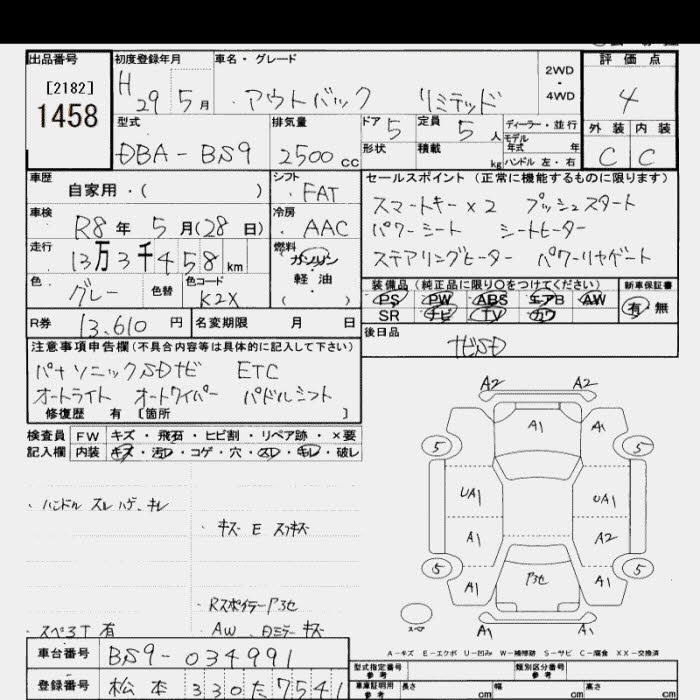 出品番号 初度登録年月 車名・グレード 2WD・4WD 評価点
[2182] H 29 5月 アウトバック リミテッド 4
1458
型式 排気量 ドア 5 定員 5人 ディーラー・並行 外装 内装
DBA-BS9 2500cc 形状 積載 kg モデル年式 年 ハンドル 左・右 C C
車歴 自家用・( ) シフト FAT セールスポイント(正常に機能するものに限ります)
車検 R8年 5月(28日) 冷房 AAC スマートキー×2 プッシュスタート
パワーシート シートヒーター
走行 13万3千458km 燃料 ガソリン・軽油 ( ) ステアリングヒーター パワーリヤゲート
色 グレー 色替 色コード K2X 装備品(純正品に限り〇をつけてください) 新車保証書
PS PW ABS エアB AW 有・無
SR ナビ TV カワ
R券 13,610円 名変期限 月 日 後日品 ナビSD
注意事項申告欄(不具合内容等は具体的に記入して下さい)
パナソニックSDナビ ETC
オートライト オートワイパー パドルシフト
修復歴 有 〔箇所 〕
検査員記入欄 FW キズ・飛石・ヒビ割・リペア跡・×要
内装 キズ・汚レ・コゲ・穴・スレ・キレ・破レ
・ハンドル スレ ハゲ、キレ
・キズ E スリキズ
・RスポイラーP3セ
・スペ3T 有 ・AW、Dミラーキズ
A2 A2
A1 A1 A1
5 5
UA1 UA1
A1 A2
5 5
A1 P3セ A1
スペ A1 A1
A-キズ E-エクボ U-凹み W-補修跡 S-サビ C-腐食 XX-交換済
車台番号 BS9-034991 型式指定番号 参考 類別区分番号 参考
登録番号 松本 330 た 7541 車庫証明用 参考 長さ cm 幅 cm 高さ cm